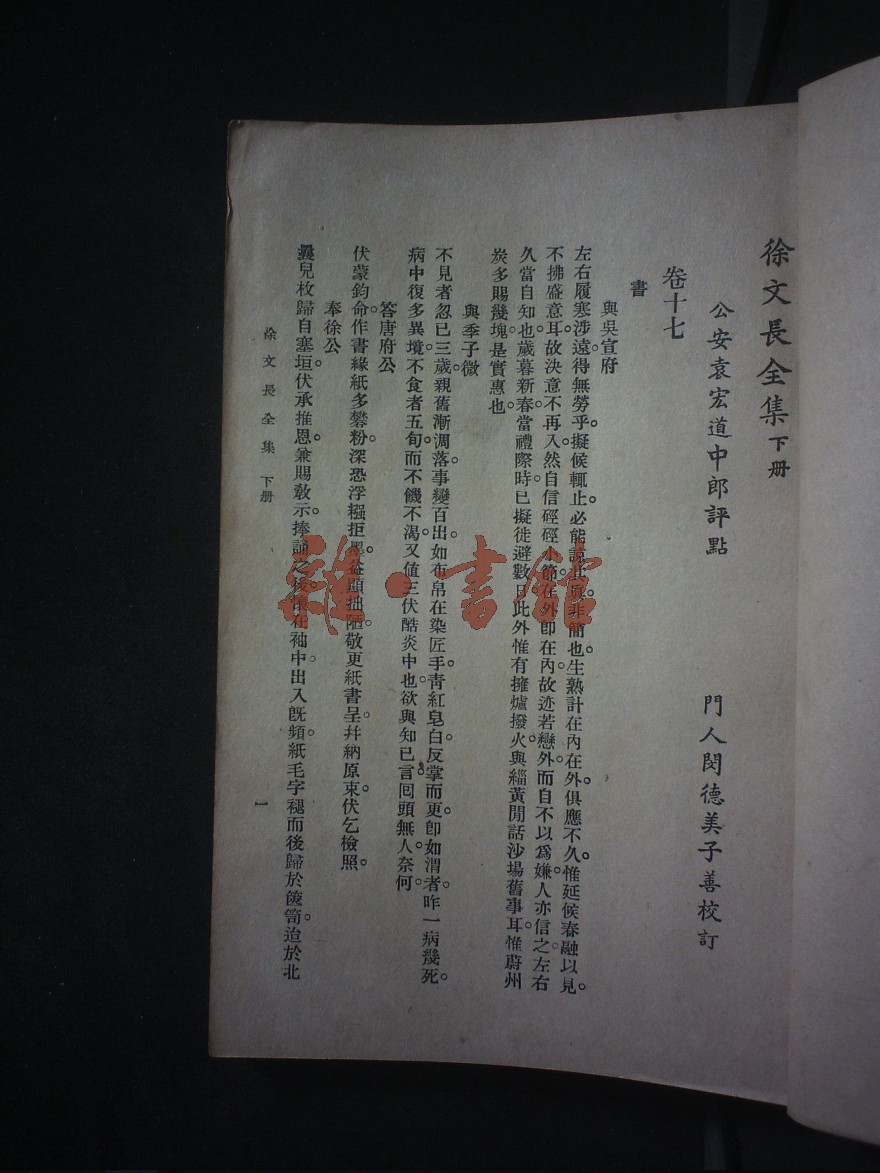 徐文長全集 下册
公安袁宏道中郎評點 門人閔德美子善校訂
卷十七
書
與吳宣府
左右履寒涉遠。得無勞乎。擬候輒止。必能諒其原非簡也。生熟計在內在外。俱應不久。惟延候春融以見。
不拂盛意耳。故決意不再入。然自信硜硜小節。在外卽在內。故迹若戀外。而自不以爲嫌。人亦信之。左右
久當自知也。歲暮新春。當禮際時。已擬徙避數日。此外惟有擁爐撥火。與緇黃閒話沙場舊事耳。惟蔚州
炭多賜幾塊。是實惠也。
與季子微
不見者忽已三歲。親舊漸凋落。事變百出。如布帛在染匠手。靑紅皂白。反掌而更。卽如渭者。昨一病幾死。
病中復多異境。不食者五旬。而不饑不渴。又値三伏酷炎中也。欲與知已言。囘頭無人。奈何。
答唐府公
伏蒙鈞命作書。緣紙多礬粉。深恐浮繦拒墨。益顯拙陋。敬更紙書呈。幷納原柬。伏乞檢照。
奉徐公
曩兒枚歸自塞垣。伏承推恩。兼賜敎示。捧誦之後。懷在袖中。出入旣頻。紙毛字褪。而後歸於篋笥。迨於北
徐文長全集 下册 一
雜·書館